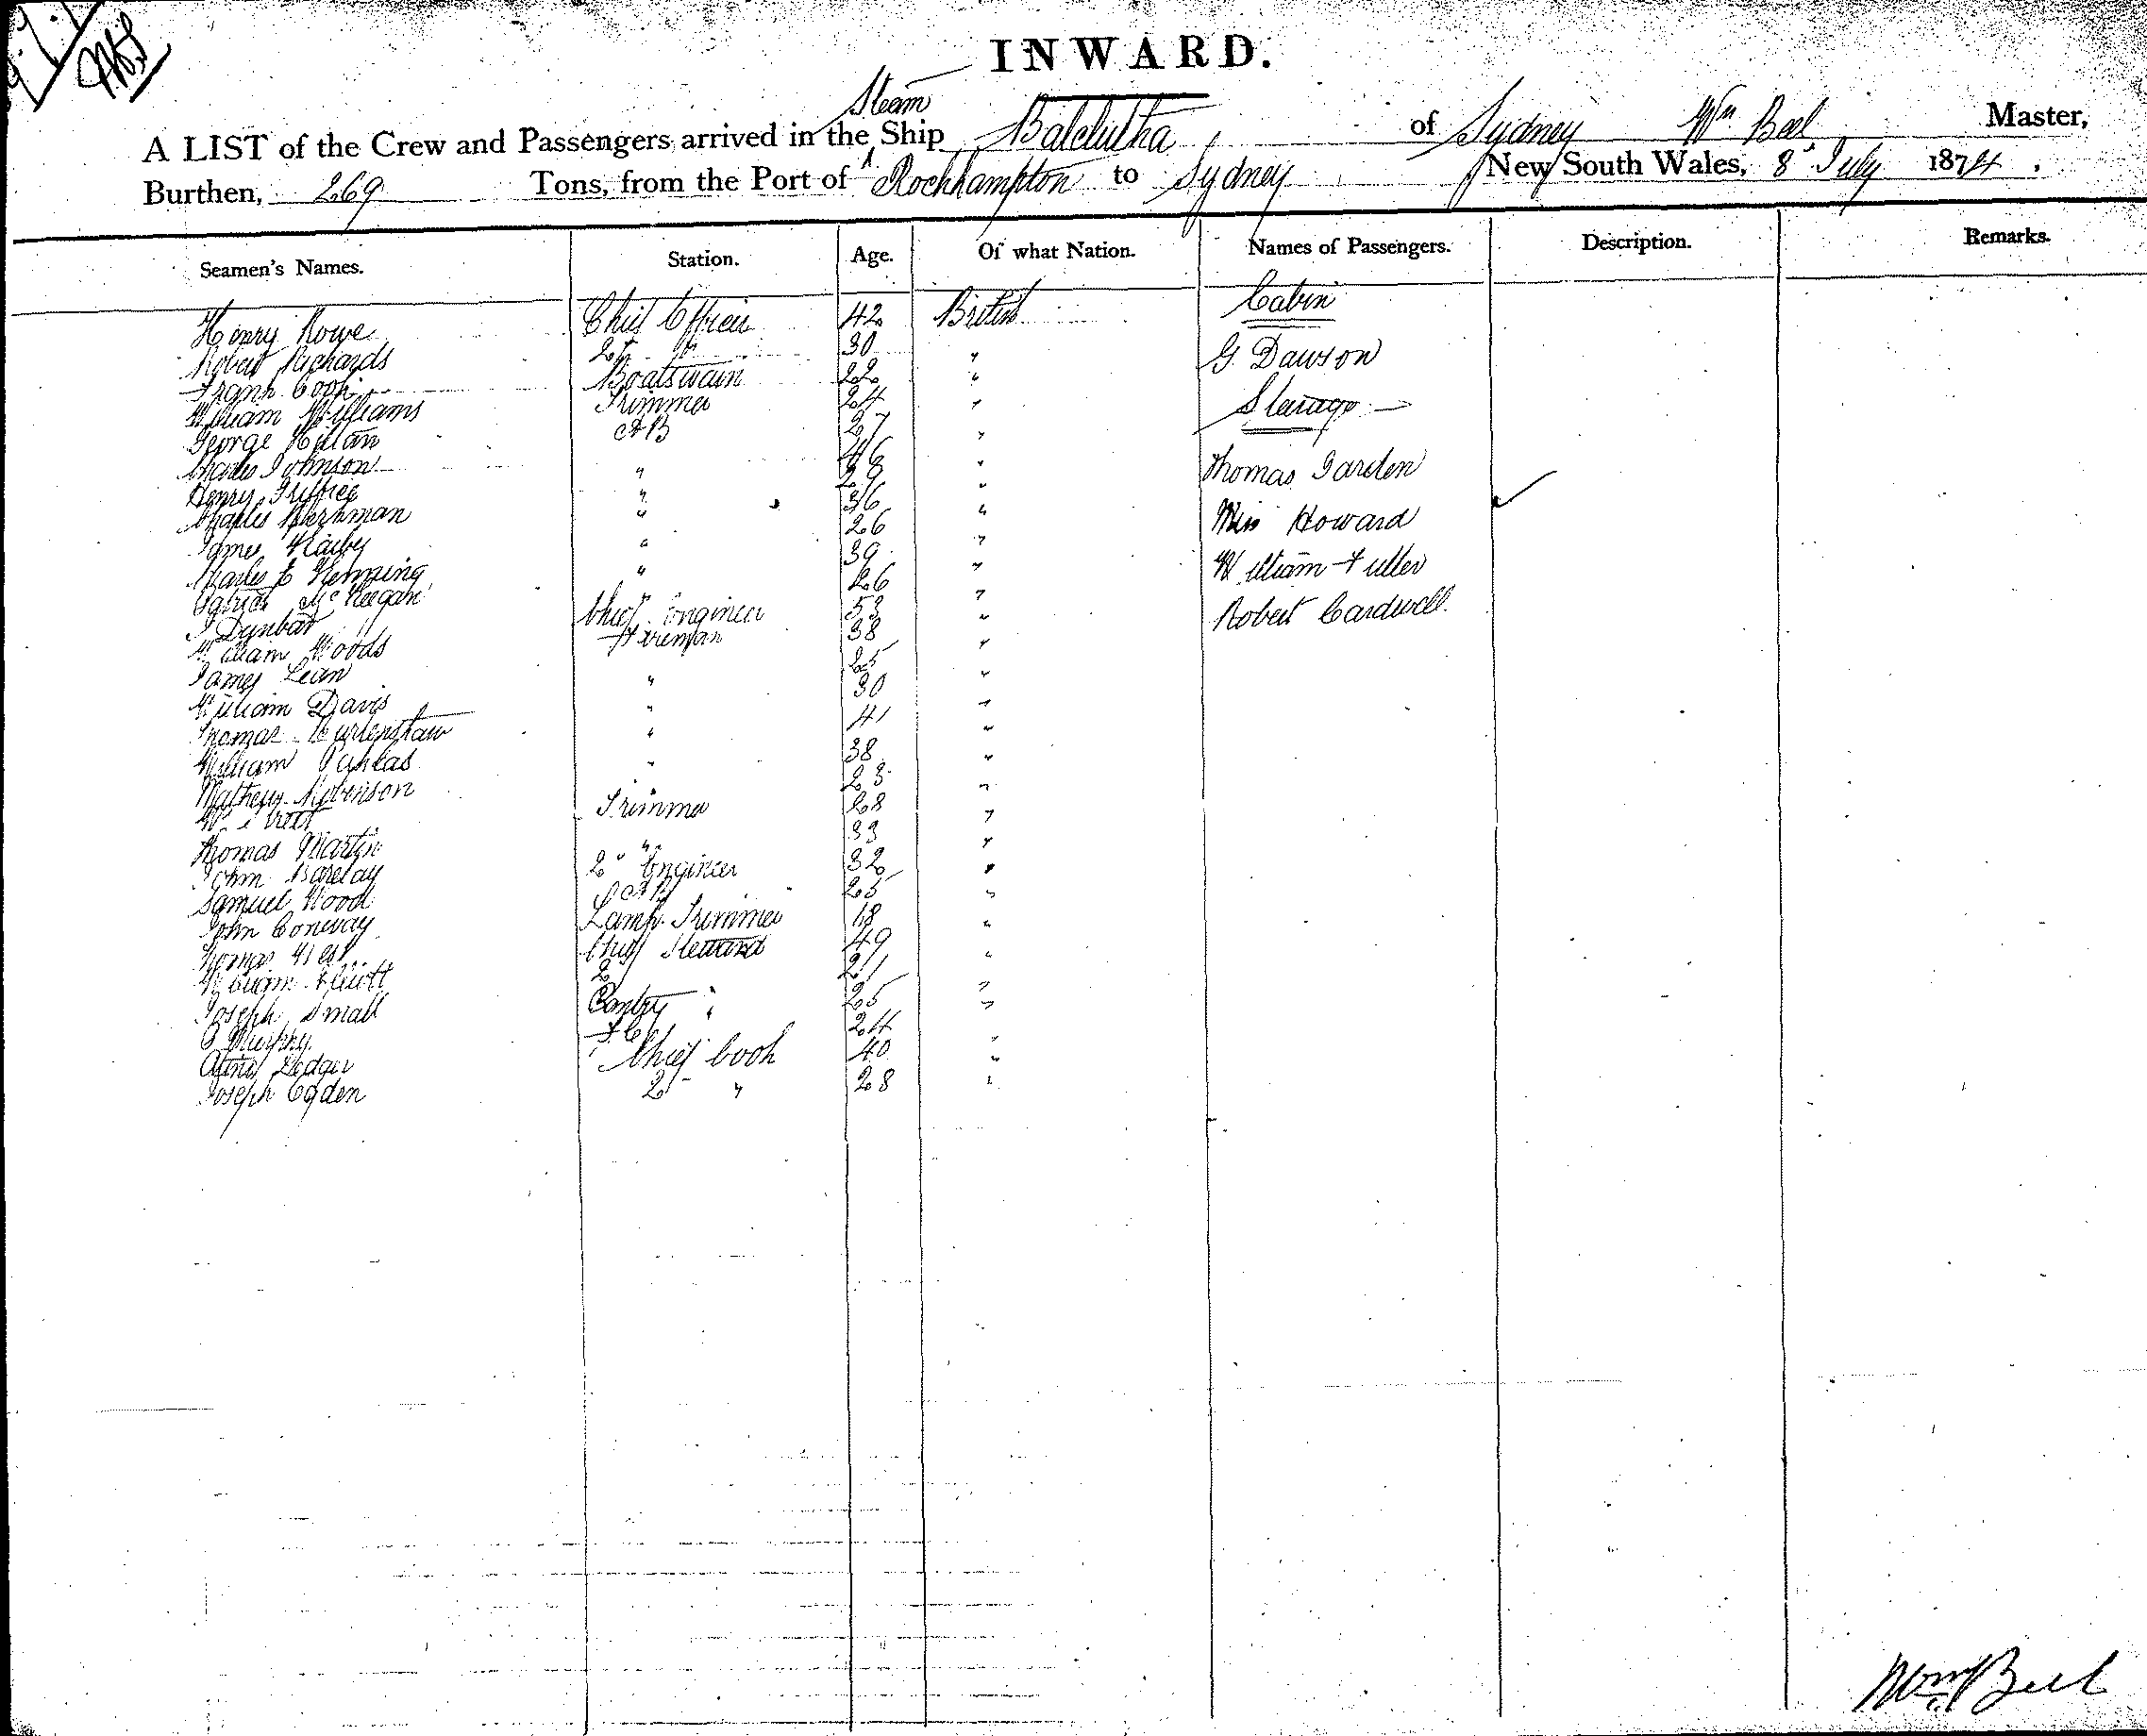 INWARD.
Steam
A LIST of the Crew and Passengers arrived in the Ship Balclutha of Sydney Wm Beel Master,
Burthen, 269 Tons, from the Port of Rockhampton to Sydney New South Wales, 8 July 1874.
Seamen's Names. Station. Age. Of what Nation. Names of Passengers. Description. Remarks.
Henry Rowe Chief Officer 42 British Cabin
Robert Richards 30 " G. Dawson
Frank Cook Boatswain 22 "
William Williams Trimmer 24 " Steerage
George AB 27 "
Charles Johnson " 46 " Thomas Garden
Henry " "
Charles " 36 " Miss Howard
James " 26 "
Charles Fleming " 39 " William Fuller
Patrick McKeegan " 26 "
J Dunbar Chief Engineer 53 " Robert Cardwell.
William Woods Fireman 38 "
James Lean " 25 "
William Davis " 30 "
Thomas " 41 "
William " 38 "
Mathew " 23 "
Trimmer 28 "
Thomas Martin " 33 "
John Barclay 2 Engineer 32 "
Samuel Wood AB 25 "
John Conway Lamp Trimmer 18 "
Thomas West Chief Steward 49 "
William 2 " 21 "
Joseph Small Pantry " 25 "
Murphy 24
Ledger Chief Cook 40 "
Joseph Ogden 2 " 28 "
Wm Beel